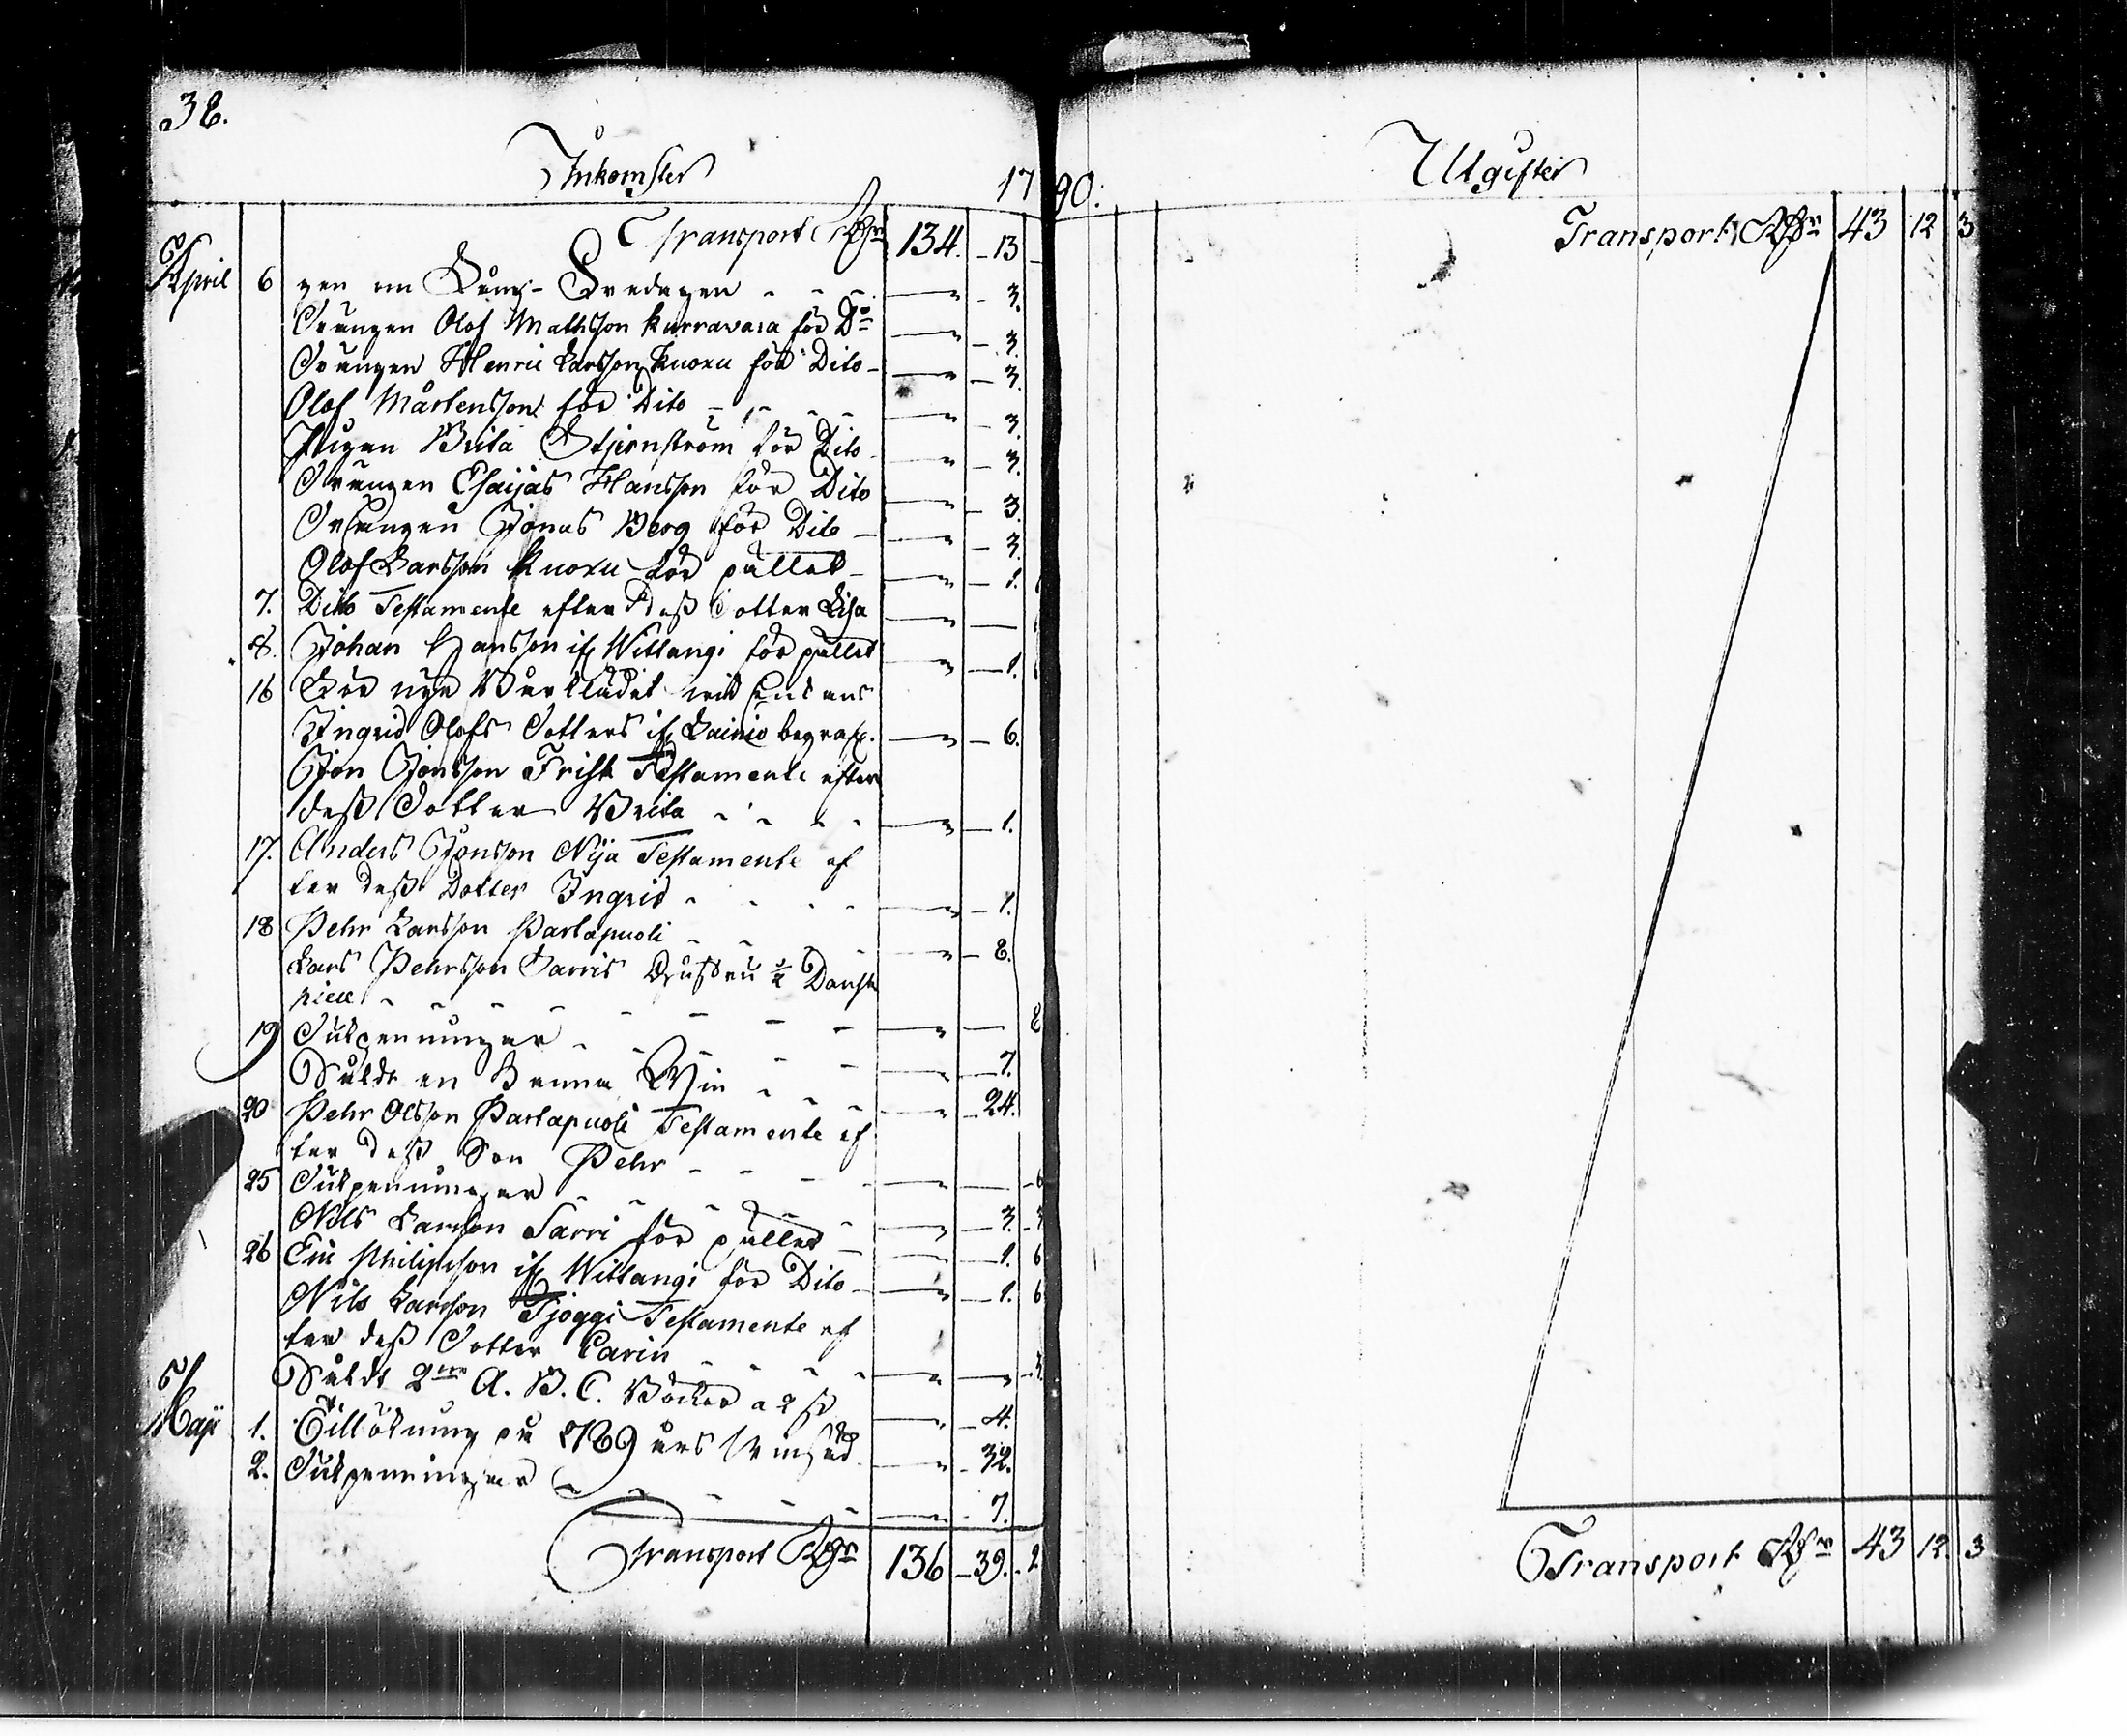 38.
Inkomster 17
Transport Rdr 134. 13
April 6 gen om Lång-Fredagen - - - 3.
Drängen Olof Mathsson Kurravara för Do 3.
Drängen Henric Larsson Kuoxu för Dito - 3.
Olof Mårtensson för Dito - - - - 3.
Pigan Brita Stjernström för Dito 3.
Drängen Esaijas Hansson för Dito 3.
Drängen Jonas Berg för Dito - 3.
Olof Larsson Kuoxu för pallet - 1.
7. Dito Testamente efter deß Dotter Lisa
8. Johan Hansson if Wittangi för pallet 1.
16 För nya Bårklädet wid Enkans
Ingrid Olofs Dotters if Lainio begraf. 6.
Jon Jonsson Frisk Testamente efter
deß Dotter Brita - - - - 1.
17. Anders Jonsson Nija Testamente ef
ter deß Dotter Ingrid - - - - 1.
18 Pehr Larsson Parlapuoli - - - - 8.
Lars Pehrsson Sarris Hustru 1/2 Dansk
piece - - - - - - - 8
19 Tiufpenningar - - - - 7.
Såldt en Kanna Win - - - 24.
20 Pehr Olsson Parlapuoli Testamente ef
ter deß Son Pehr - - - - 6
25 - - - - - 3. 3
Nils Larsson Sarri för pallet - 1. 6
26 Eric Philipsson if Wittangi för Dito 1. 6
Nils Larsson Tjoggi Testamente ef
ter deß Dotter Carin - - - - 3
Såldt 2ne A. B. C. Böcker a 2 sk 4.
Maji 1. Tillökning på 1789 års 32.
2. - - - - - 7.
Transport Rdr 136 - 39. - 2
90.
Utgifter
Transport Rdr 43 12 3
Transport Rdr 43 12. 3